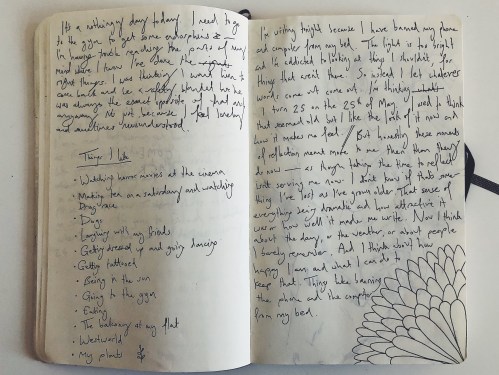 It's a nothingy day today. I need to go
to the gym to get some endorphins &
I'm having touch regarding the parts of my
mind where I know I've done the
right things. I was thinking I want him to
come back and be a safety blanket but he
was always the exact opposite of that and
anyway. It's just because I feel lonely
and sometimes misunderstood.
Things I like
• Watching horror movies at the cinema
• Making tea on a Saturday and watching
Drag race
• Dogs
• Laughing with my friends
• Getting dressed up and going dancing
• Getting tattooed
• Being in the sun
• Going to the gym
• Eating
• The balcony at my flat
• Westworld
• My plants
I'm writing tonight because I have banned my phone
and computer from my bed. The light is too bright
and I'm addicted to looking at things I shouldn't, for
things that aren't there. So instead I let whatever
words come out come out. I'm thinking
I turn 25 on the 25th of May. I used to think
that seemed old but I like the look of it now and
how it makes me feel. But honestly these moments
of reflection meant more to me then than they
do now — as though taking the time to reflect
isn't serving me now. I don't know if that's some-
thing I've lost as I've grown older. That sense of
everything being dramatic and how attractive it
was or how well it made me write. Now I think
about the day, or the weather, or about people
I barely remember. And I think about how
happy I am and what I can do to
keep that. Things like banning
the phone and the computer
from my bed.